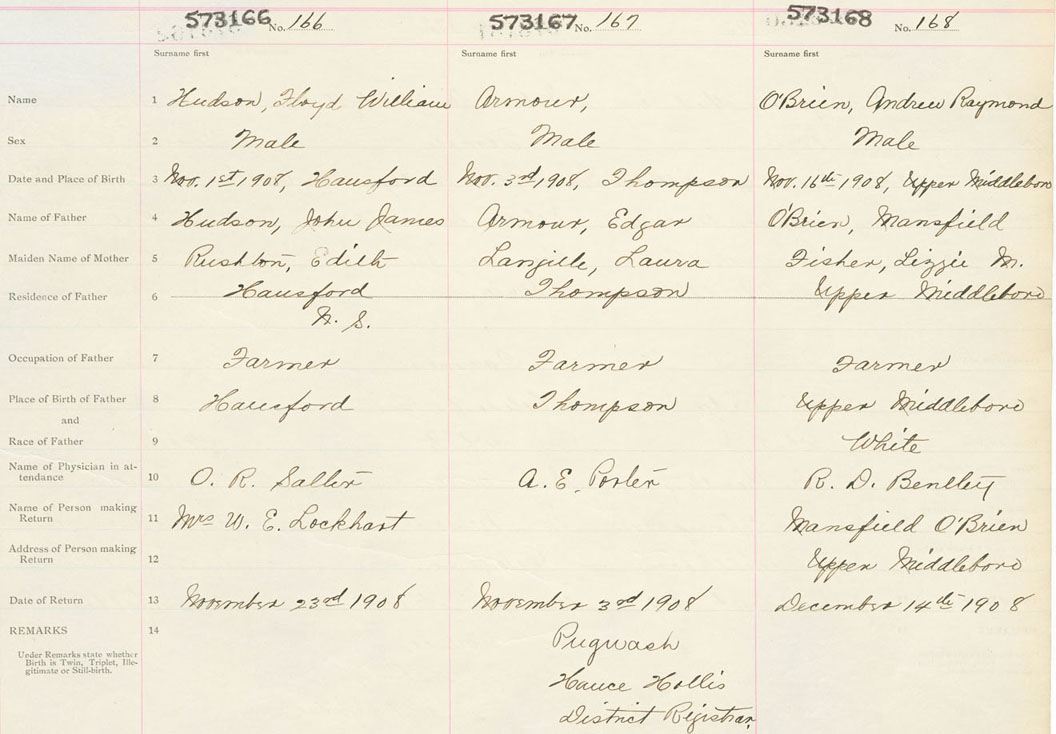 573166 No. 166 573167 No. 167 573168 No. 168
Surname first Surname first Surname first
Name 1 Hudson, Floyd William Armour, O'Brien, Andrew Raymond
Sex 2 Male Male Male
Date and Place of Birth 3 Nov. 1st 1908, Hansford Nov. 3rd 1908, Thompson Nov. 16th 1908, Upper Middleboro
Name of Father 4 Hudson, John James Armour, Edgar O'Brien, Mansfield
Maiden Name of Mother 5 Rushton, Edith Langille, Laura Fisher, Lizzie M.
Residence of Father 6 Hansford Thompson Upper Middleboro
N. S.
Occupation of Father 7 Farmer Farmer Farmer
Place of Birth of Father 8 Hansford Thompson Upper Middleboro
and
Race of Father 9 White
Name of Physician in at-
tendance 10 O. R. Salter A. E. Porter R. D. Bentley
Name of Person making
Return 11 Mrs W. E. Lockhart Mansfield O'Brien
Address of Person making
Return 12 Upper Middleboro
Date of Return 13 November 23rd 1908 November 3rd 1908 December 14th 1908
REMARKS 14
Pugwash
Under Remarks state whether
Birth is Twin, Triplet, Ille-
gitimate or Still-birth.
Hance Hollis
District Registrar,